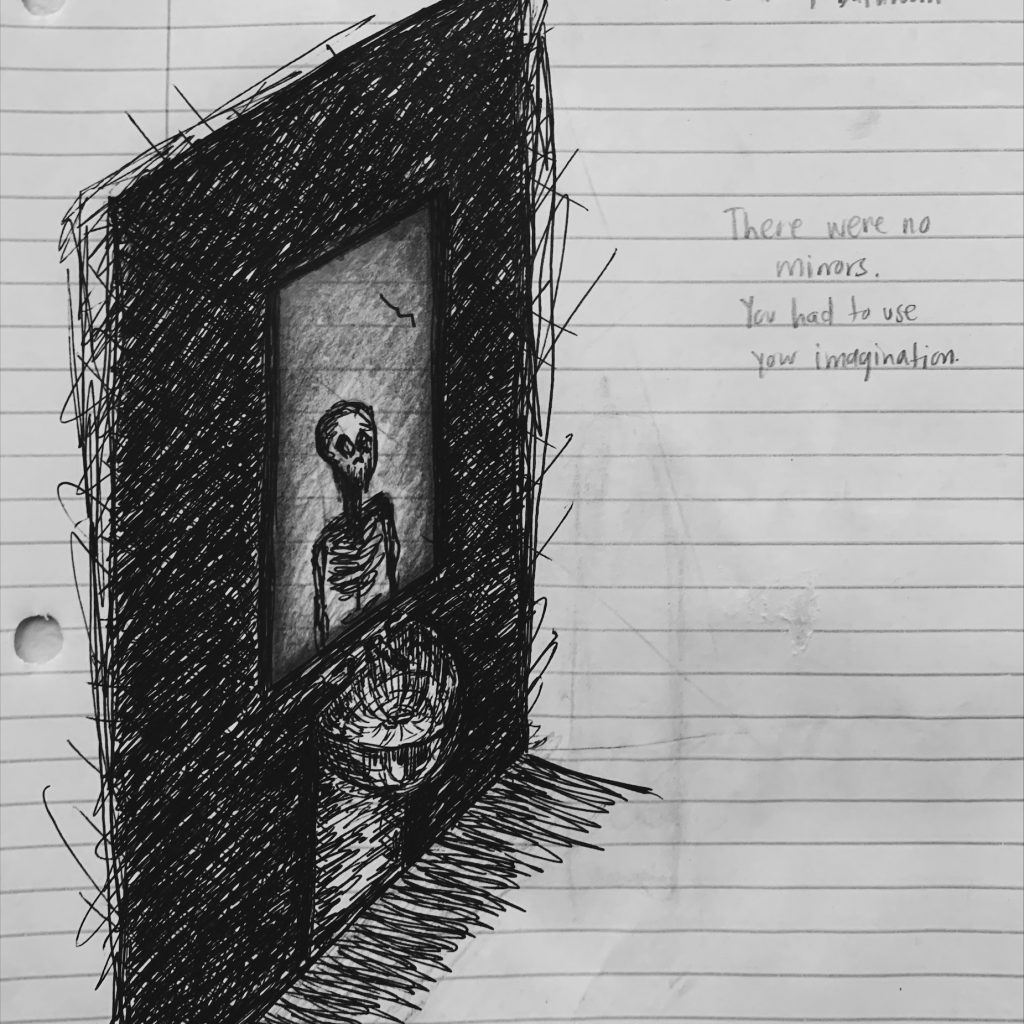 bathroom
There were no
mirrors.
You had to use
your imagination.